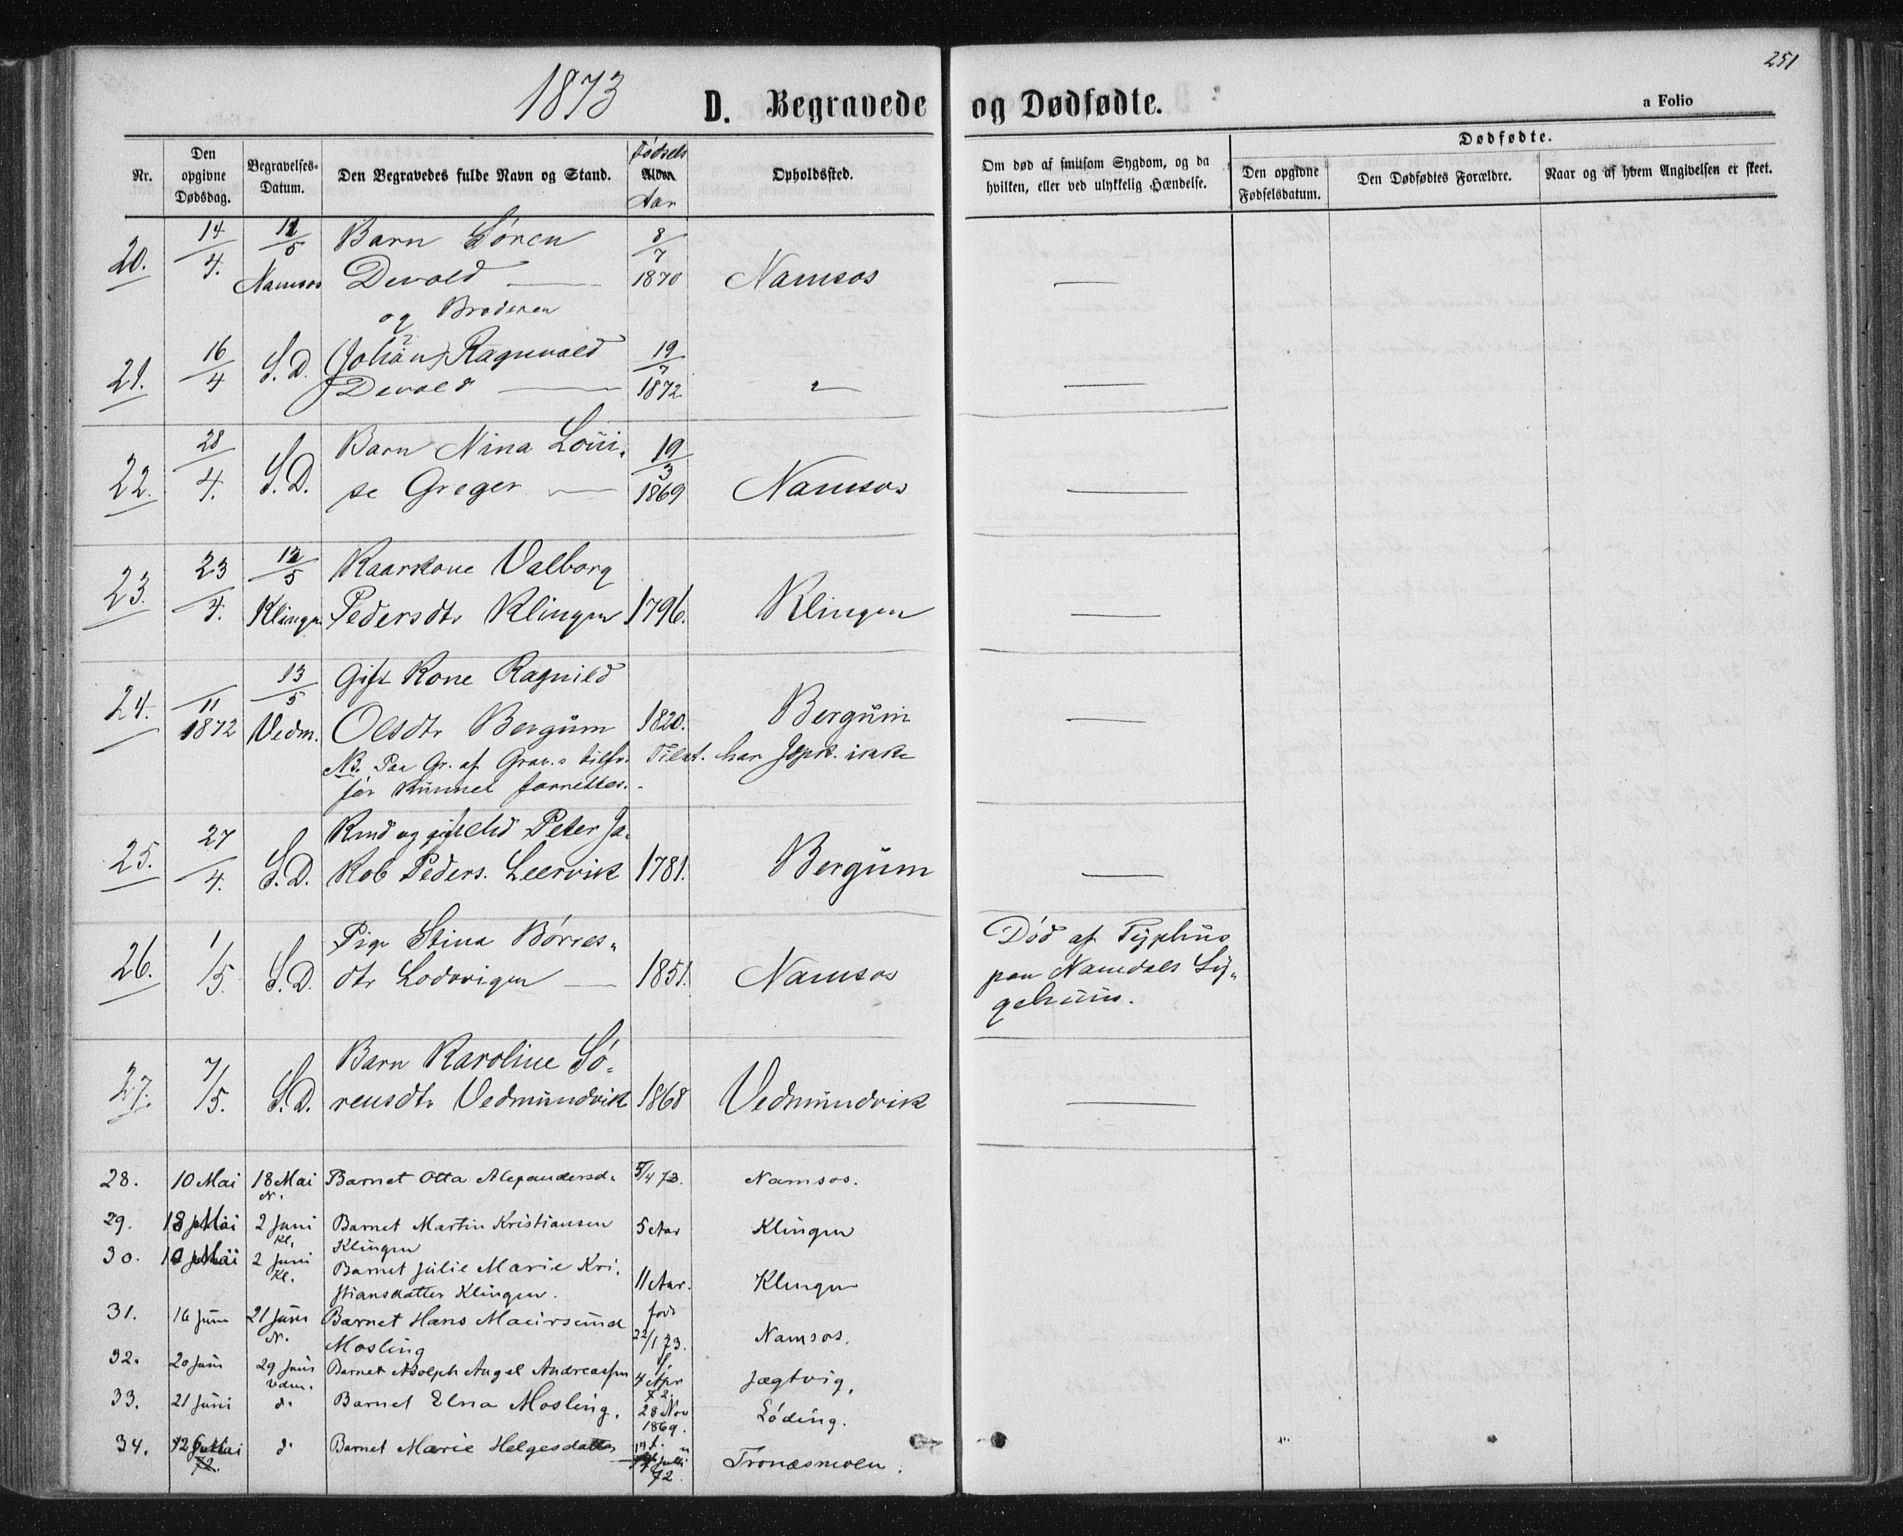 251
1873
D. Begravede og Dødfødte.
a Folio
Nr.
Den opgivne Dødsdag.
Begravelses-Datum.
Den Begravedes fulde Navn og Stand.
Fødsels Alder Aar
Opholdssted.
Om død af smitsom Sygdom, og da hvilken, eller ved ulykkelig Hændelse.
Dødfødte.
Den opgivne Fødselsdatum.
Den Dødfødtes Forældre.
Naar og af hvem Angivelsen er skeet.
20. 14/4. 12/5 Barn Søren 8/7
Namsos Devold — 1870 Namsos —
og Broderen
21. 16/4 S.D. (Johan) Ragnvald 19/7
Devold — 1872 " —
22. 28/4. S.D. Barn Nina Loui- 19/3
se Greger — 1869 Namsos —
23. 23/4. 12/5 Kaarkone Valborg
Klingen Pedersdtr Klingen 1796. Klingen —
24. /11 1872 13/5 Gift Kone Ragnild
Vedm. Olsdtr Bergum 1820. Bergum —
NB. Paa Gr. af Grav.s tilfr. Tilst. har Jspk. ikke
før kunnet forrettes.
25. 27/4. S.D. Peter Ja-
kob Peders. Leervik 1781. Bergum —
26. 1/5. S.D. Pige Stina Børres- Død af Typhus
dtr Lodvigen — 1851. Namsos paa Namdals Sy-
gehuus.
27. 7/5. S.D. Barn Karoline Sø-
rensdtr Vedmundvik 1868 Vedmundvik —
28. 10 Mai 18 Mai Barnet Otta Alexandersd. 5/4 73. Namsos.
N.
29. 18 Mai 2 Juni Barnet Martin Kristiansen 5 Aar Klingen
Kl. Klingen
30. 10 Mai 2 Juni Barnet Julie Marie Kri-
Kl. stiansdatter Klingen. 11 Aar. Klingen
31. 16 Juni 21 Juni Barnet Hans Maursund født
N. Mosling 22/1 73. Namsos.
32. 20 Juni 29 Juni Barnet Adolph Angel Andreassen 4 Apr
Vedm. 72. Jægtvig.
33. 21 Juni d. Barnet Elna Mosling. 28 Nov
1869. Löding.
34. 12 d. Barnet Marie Helgesdatter Juli
72. Tronæsmoen.